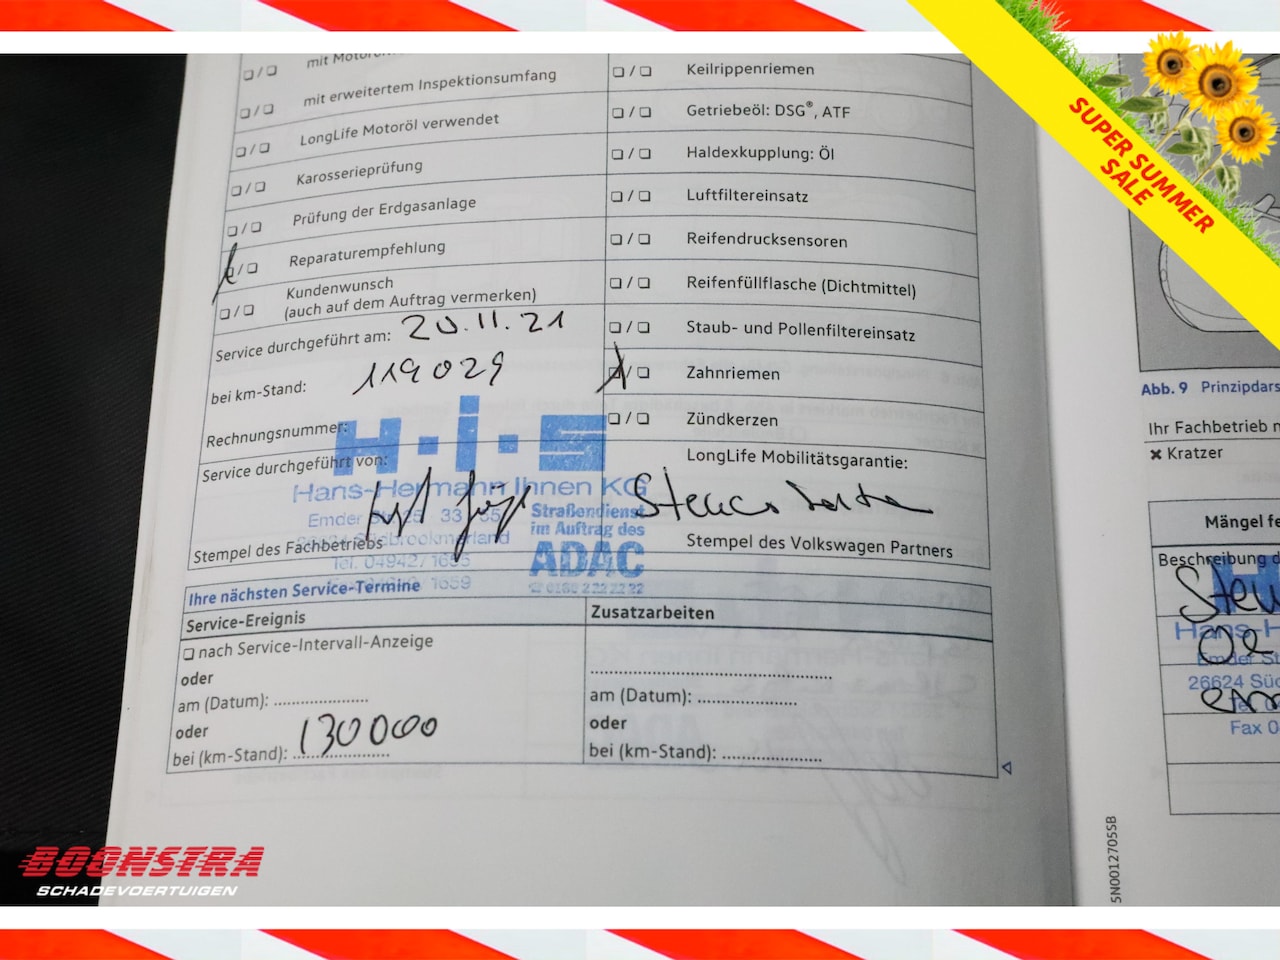 mit erweitertem Inspektionsumfang
LongLife Motoröl verwendet
Karosserieprüfung
Prüfung der Erdgasanlage
Reparaturempfehlung
Kundenwunsch
(auch auf dem Auftrag vermerken)
Service durchgeführt am: 20.11.21
bei km-Stand: 119029
Rechnungsnummer:
Service durchgeführt von:
H·I·S
Hans-Hermann Ihnen KG
Straßendienst
im Auftrag des
ADAC
Tel. 04942/1655
Stempel des Fachbetriebs
Keilrippenriemen
Getriebeöl: DSG®, ATF
Haldexkupplung: Öl
Luftfiltereinsatz
Reifendrucksensoren
Reifenfüllflasche (Dichtmittel)
Staub- und Pollenfiltereinsatz
Zahnriemen
Zündkerzen
LongLife Mobilitätsgarantie:
Stempel des Volkswagen Partners
Ihre nächsten Service-Termine
Service-Ereignis
Zusatzarbeiten
nach Service-Intervall-Anzeige
oder
am (Datum):
oder
bei (km-Stand): 130000
am (Datum):
oder
bei (km-Stand):
Abb. 9 Prinzipdars
Ihr Fachbetrieb
Kratzer
Mängel fe
Beschreibung d
Hans-H
Emder St
26624 Süd
Fax 0
5N0012705SB
SUPER SUMMER
SALE
BOONSTRA
SCHADEVOERTUIGEN